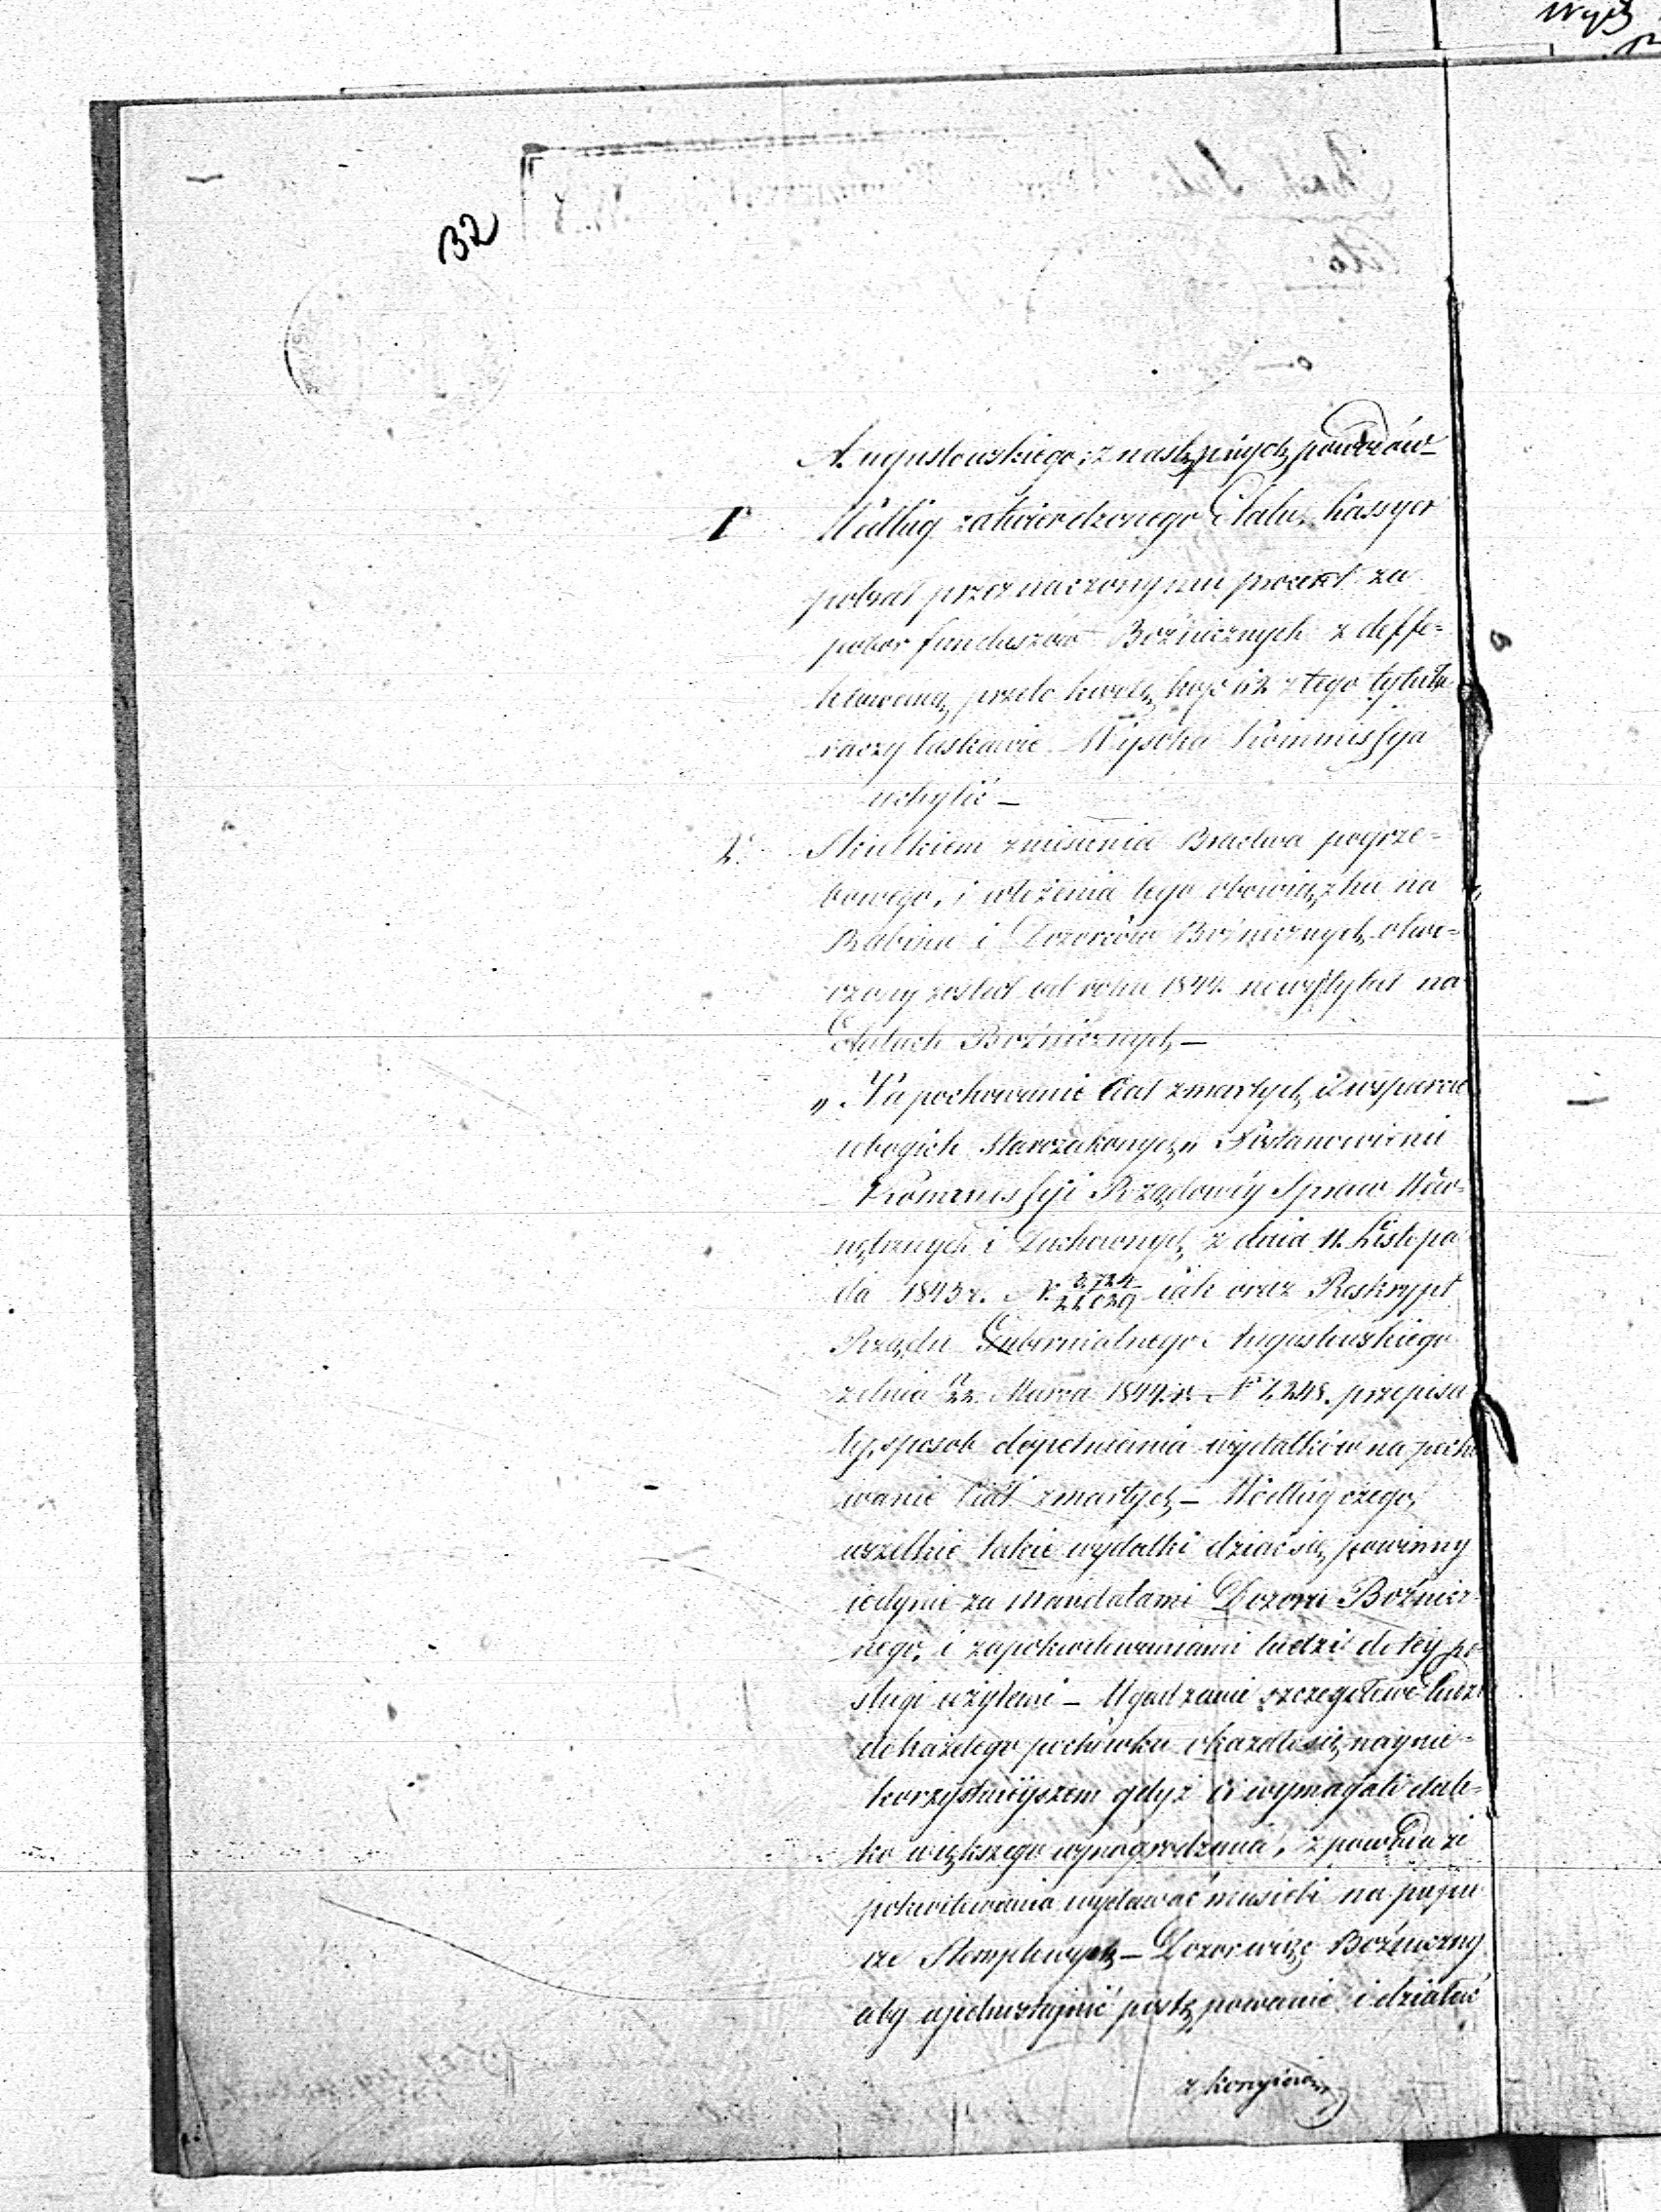 132
Augustowskiego, z następnych powodów
1. Według zatwierdzonego Etatu, Kassyer
pobrał przeznaczony mu procent za
pobor funduszów Bożnicznych z deffe-
ktowaną, przeto kwotę kop. z tego tytułu
raczy łaskawie Wysoka Kommissya
uchylić —
2. Skutkiem zniesienia Bractwa pogrze-
bowego, i włożenia tego obowiązku na
Rabina i Dozorców Bożnicznych, otwo-
rzony został od roku 1844. nowy tytuł na
Etatach Bożnicznych —
„Na pochowanie Ciał zmarłych i wsparcie
ubogich Starozakonnych„ Postanowienie
Kommissyi Rządowéy Spraw Wew-
nętrznych i Duchownych z dnia 11. Listopa
da 1843 r. N. 3,724/21029 iak oraz Reskrypt
Rządu Gubernialnego Augustowskiego
z dnia 22 Marca 1844 r. N 7,248. przepisa
ły, sposob dopełniania wydatków na pocho
wanie Ciał zmarłych — Według czego,
wszelkie takie wydatki dziać się powinny
iedynie za Mandatami Dozoru Bożnicz-
nego, i zapokwitowaniami ludzi do téy po
sługi użytemi — Ugodzenie szczegółowe ludzi
do każdego pochówku okazało się naynie-
korzystnieyszem gdyż Ci wymagali dale-
ko większego wynagrodzenia, z powodu że
pokwitowania wydawać musieli na papie
rze Stemplowych — Dozor więc Bożniczny
aby ujednostajnić postępowanie i działać
z korzyścią